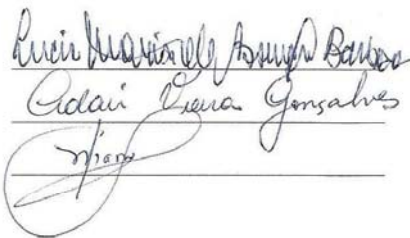 Lucia Maria de Assunção Barbosa
Adair Vieira Gonçalves